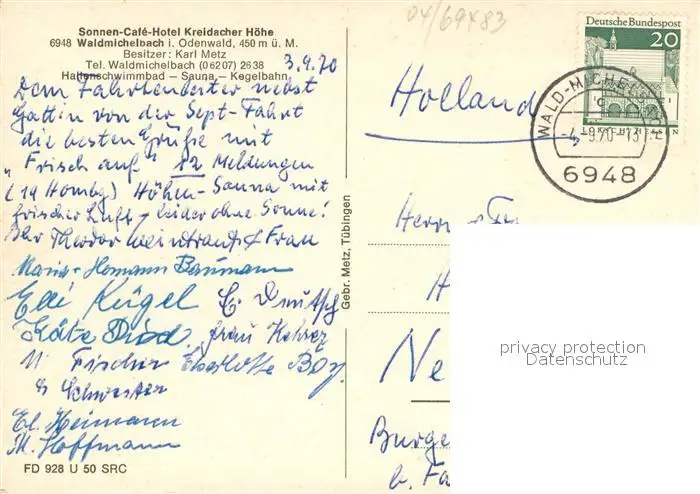 Sonnen-Café-Hotel Kreidacher Höhe
6948 Waldmichelbach i. Odenwald, 450 m ü. M.
Besitzer: Karl Metz
Tel. Waldmichelbach (06207) 2638
Hallenschwimmbad — Sauna — Kegelbahn
3.9.70
Dem Fahrtenleiter nebst
Gattin von der Sept-Fahrt
die besten Grüße mit
"Frisch auf" 12 Meldungen
(19 Hombg) Höhen-Sauna mit
frischer Luft – leider ohne Sonne!
Ihr Theodor Weintraut & Frau
Maria + Hermann Baumann
Elli Kügel E. Deutsch
Käte Diod. Frau Kehrer
M Fischer Charlotte Boy.
& Schwester
El. Heimann
M. Hoffmann
FD 928 U 50 SRC
Gebr. Metz, Tübingen
04/69483
Deutsche Bundespost
20
LORSCH/HESSEN
WALD-MICHELBACH
-4.9.70-13
6948
Holland
Herrn &
H
Ne
Burge
b. Fa
privacy protection
Datenschutz